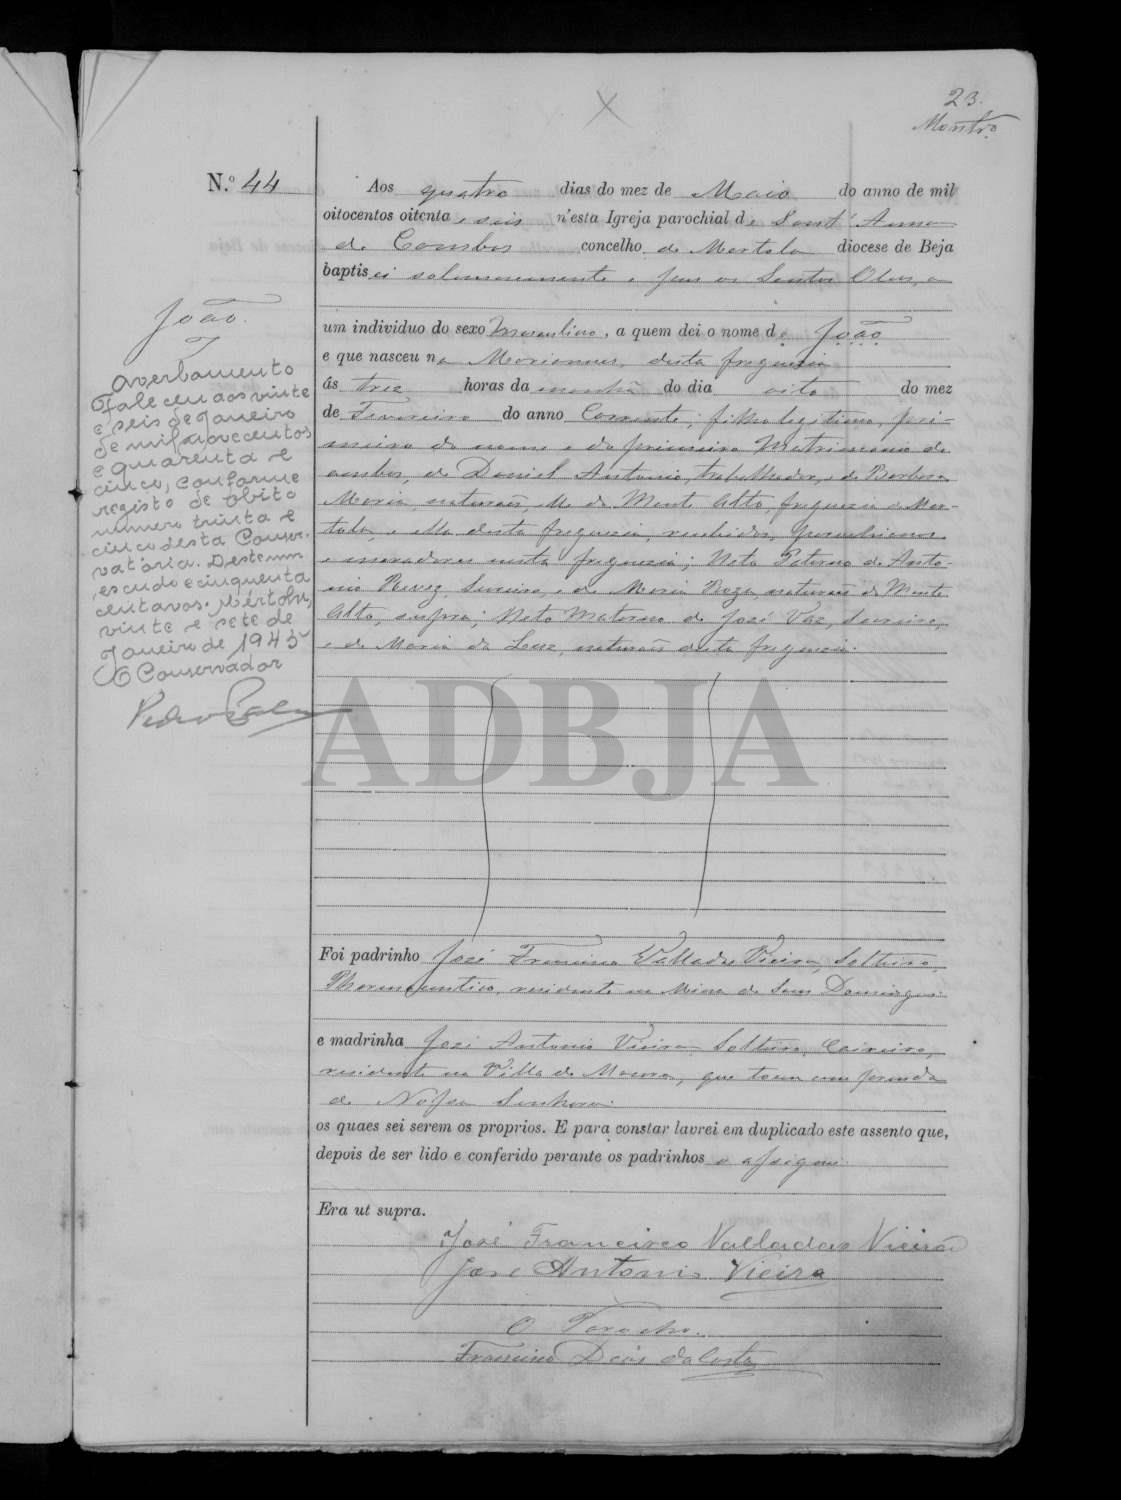 23.
N.º 44
Aos quatro dias do mez de Maio do anno de mil
oitocentos oitenta e seis n'esta Igreja parochial de Sant'Anna
de Cambas concelho de Mertola diocese de Beja
baptisei solemnemente e puz os Santos Oleos, a
um individuo do sexo Masculino, a quem dei o nome de João
e que nasceu na desta freguezia
ás trez horas da manhã do dia oito do mez
de Fevereiro do anno Corrente; filho legitimo, pri-
meiro do nome e do primeiro Matrimonio de
ambos, de Daniel Antonio, trabalhador, e de Barbara
Maria, naturaes, elle do Monte Alto, freguezia de Mer-
tola, e ella desta freguezia, recebidos, parochianos
e moradores nesta freguezia; Neto Paterno de Anto-
nio e de Maria naturaes do Monte
Alto, supra; Neto Materno de José Vaz,
e de Maria da Luz, naturaes desta freguezia.
João.
Averbamento
Faleceu aos vinte
e seis de Janeiro
de mil novecentos
e quarenta e
cinco, conforme
registo de óbito
número trinta e
cinco desta Conser-
vatória. Deste um
escudo e cinquenta
centavos. Mértola,
vinte e sete de
Janeiro de 1945
O Conservador
Pedro
ADBJA
Foi padrinho José Francisco Valladas Vieira, Solteiro,
Pharmaceutico, residente na Mina de Sam Domingos.
e madrinha José Antonio Vieira, Solteiro, Caixeiro,
residente na Villa de Moura, que tocou com prenda
de Nossa Senhora.
os quaes sei serem os proprios. E para constar lavrei em duplicado este assento que,
depois de ser lido e conferido perante os padrinhos o assignei.
Era ut supra.
José Francisco Valladas Vieira
José Antonio Vieira
O Parocho.
Francisco Dias da Costa